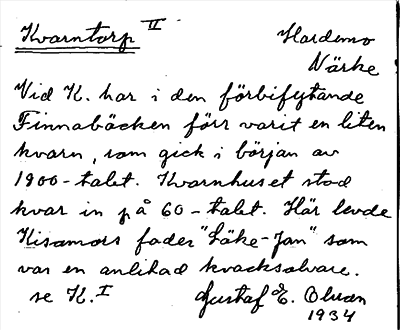 Kvarntorp II
Hardemo
Närke
Vid K. har i den förbiflytande
Finnabäcken förr varit en liten
kvarn, som gick i början av
1900-talet. Kvarnhuset stod
kvar in på 60-talet. Här levde
Kisamors fader "Läke-Jan" som
var en anlitad kvacksalvare.
se K. I
Gustaf E. Olson
1934